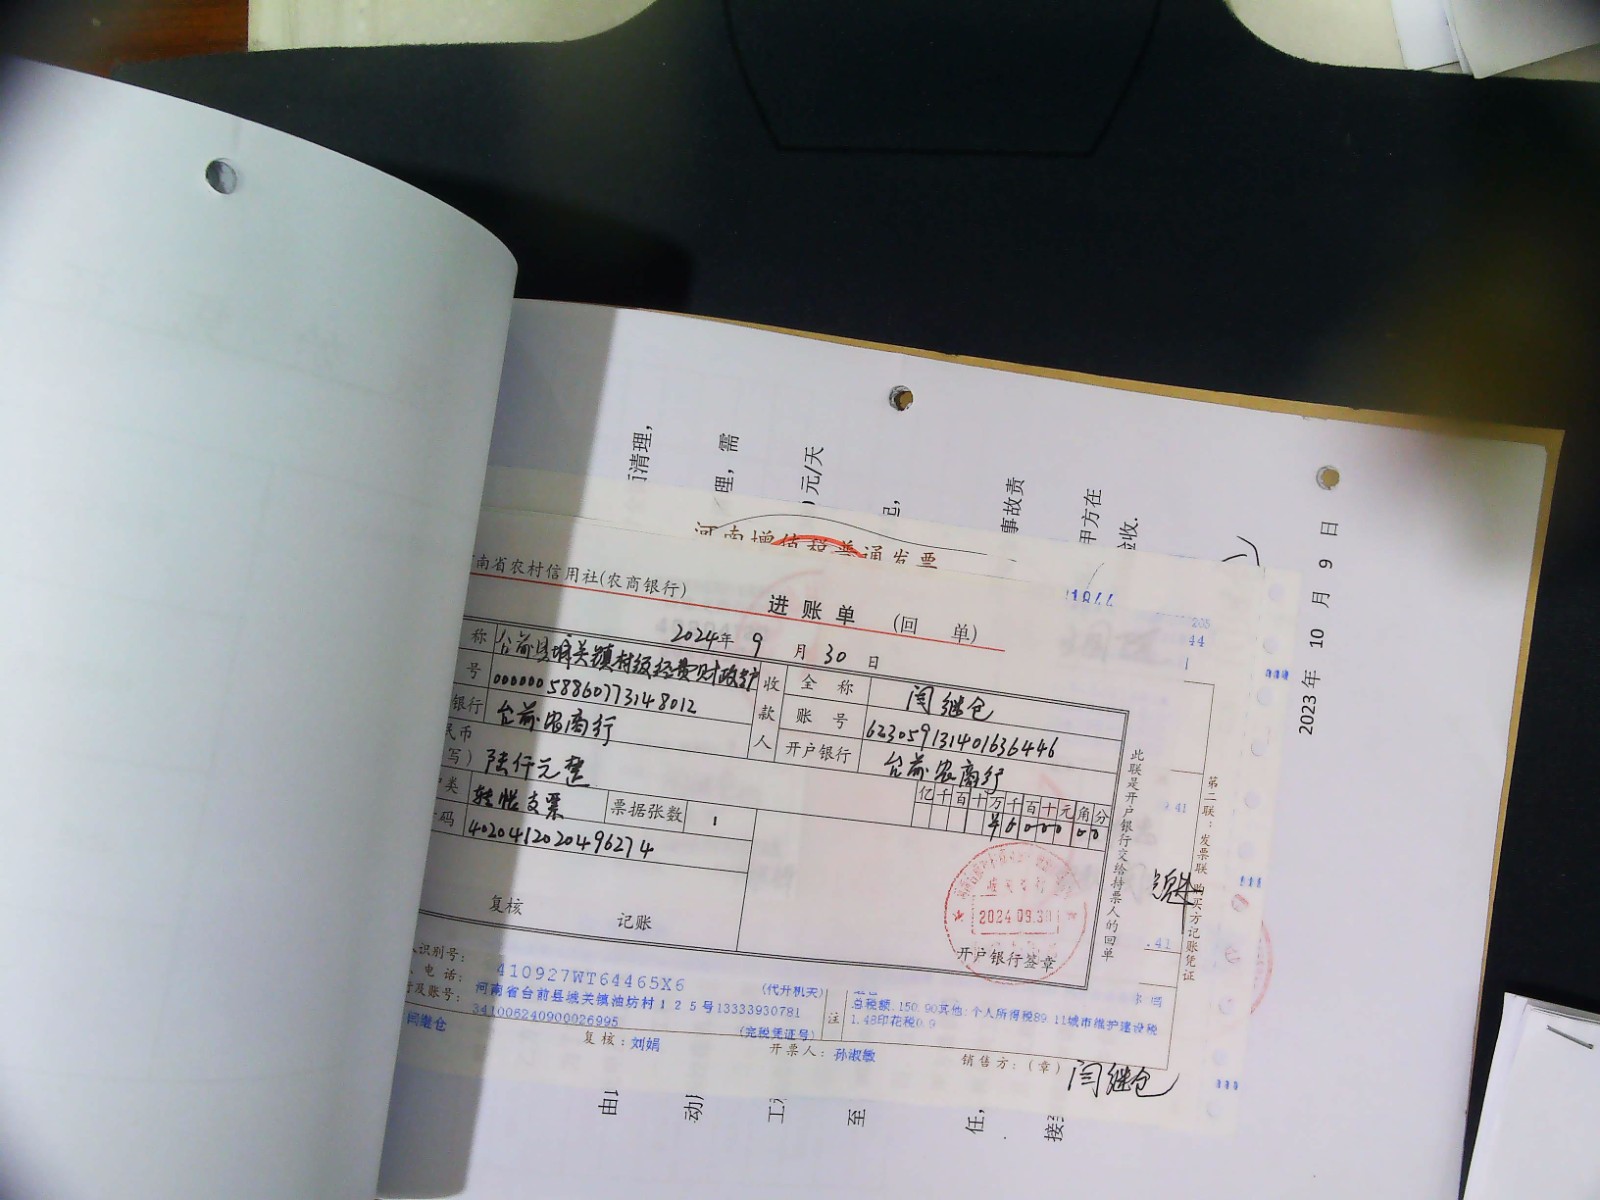 清理，
理，需
元/天
事故责
甲方在
验收.
2023年 10 月 9 日
河南增值税普通发票
南省农村信用社(农商银行)
进 账 单 (回 单)
2024年 9 月 30 日
称 台前县城关镇村级经费财政专户
号 00000058860773148012
银行 台前农商行
收款人
全 称 闫继仓
账 号 623059131401636446
开户银行 台前农商行
民币
写) 陆仟元整
亿 千 百 十 万 千 百 十 元 角 分
¥ 6 0 0 0 0 0
类 转账支票 票据张数 1
码 4020412020496274
复核 记账
2024.09.30
开户银行签章
此联是开户银行交给持票人的回单
44
.41
.41
第二联：发票联 购买方记账凭证
识别号： 410927WT64465X6 (代开机关)
电话： 河南省台前县城关镇油坊村125号13333930781
及账号： 341006240900026995 (完税凭证号)
注
总税额.150.90其他:个人所得税89.11城市维护建设税
1.48印花税0.9
闫继仓 复核：刘娟 开票人：孙淑敏 销售方：(章)
闫继仓
由
动
工
至
任，
接